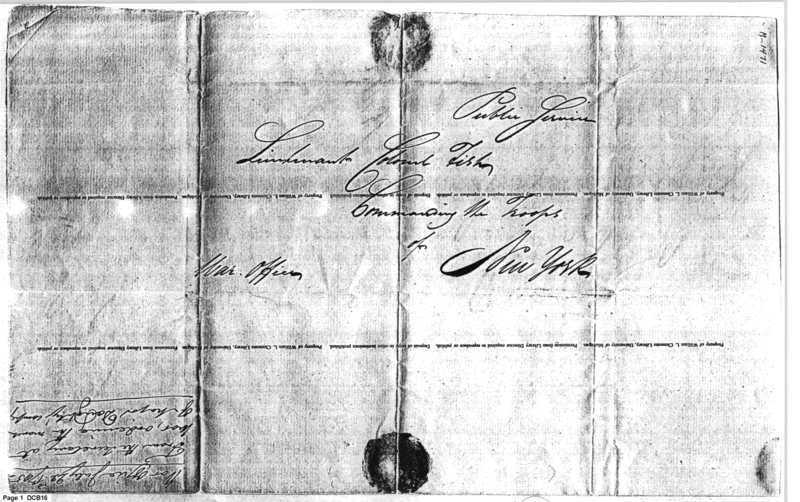 Public Service
Lieutenant Colonel Fish
Commanding the Troops
of
War Office
New York
A-1471
Property of William L. Clements Library, University of Michigan. Permission from Library Director required to reproduce or publish. Deposit of copy in other institutions prohibited.
Property of William L. Clements Library, University of Michigan. Permission from Library Director required to reproduce or publish. Deposit of copy in other institutions prohibited.
War Office July 1785
From the Secretary at
War, ordering the march
of Major
Page 1 DCB16